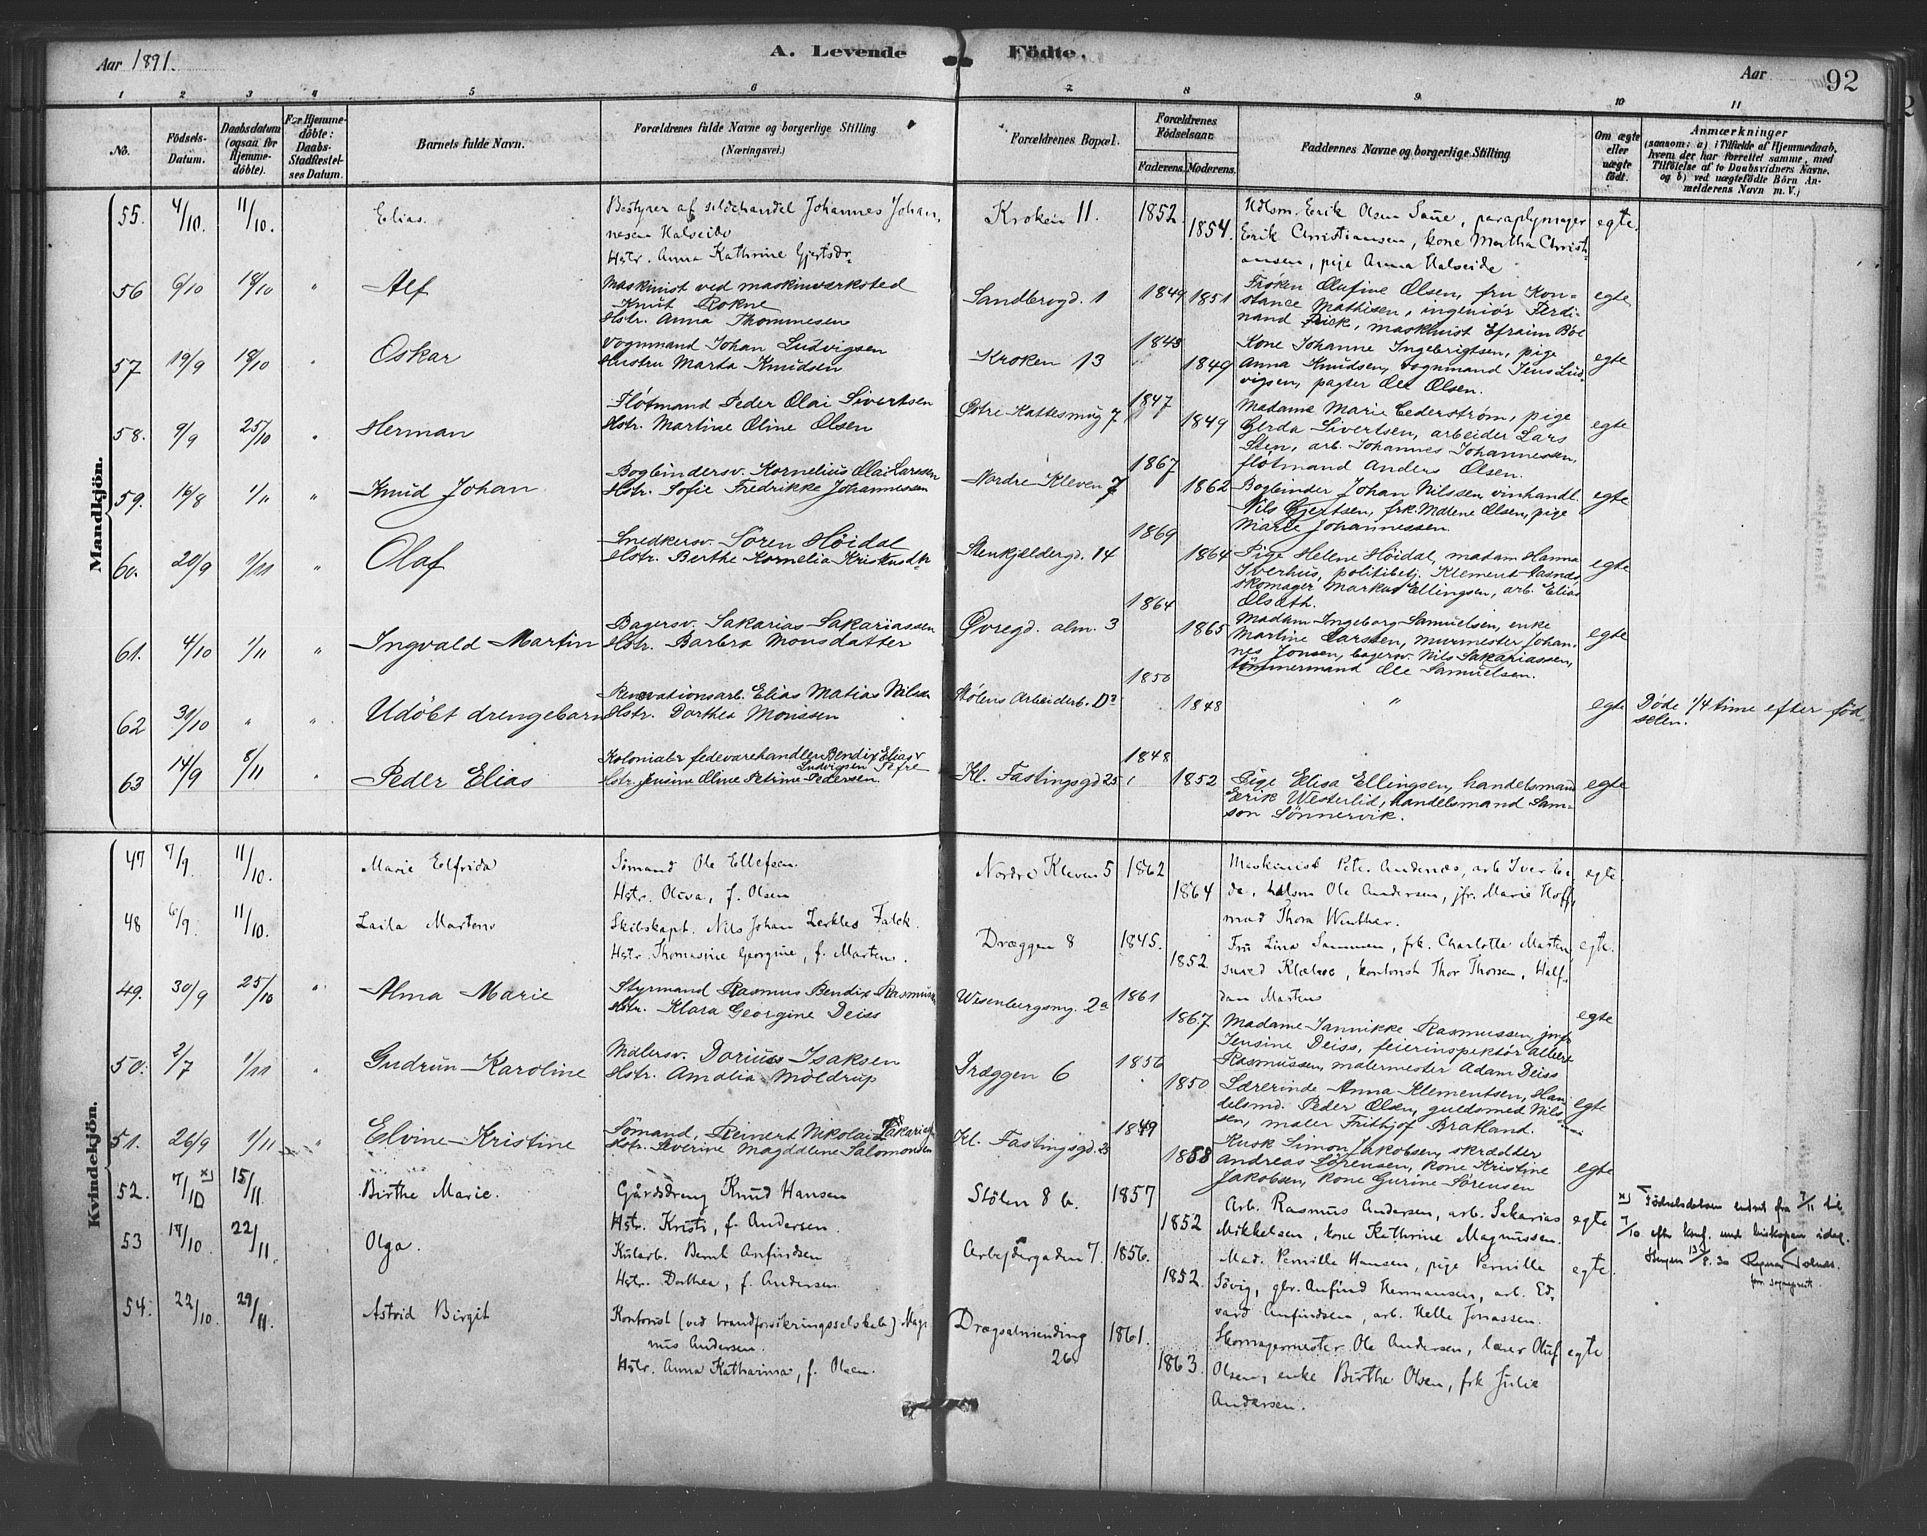 Aar 1891.
A. Levende Födte.
Aar
92
1 2 3 4 5 6 7 8 9 10 11
No.
Födsels-Datum.
Daabsdatum (ogsaa for Hjemme-döbte).
For Hjemme-döbte: Daabs-Stadfæstel-ses Datum.
Barnets fulde Navn.
Forældrenes fulde Navne og borgerlige Stilling (Næringsvei.)
Forældrenes Bopæl.
Forældrenes Födselsaar.
Faderens. Moderens.
Faddernes Navne og borgerlige Stilling
Om ægte eller uægte födt.
Anmærkninger
(saasom: a) i Tilfælde af Hjemmedaab, hvem der har forrettet samme, med Tilföielse af to Daabsvidners Navne, og b) ved uægtefödte Börn An-melderens Navn m. V.)
Mandkjön.
55. 4/10. 11/10. Elias. Bestyrer af sildehandel Johannes Johan- Kroken 11. 1852. Erik Olsen Saue, paraplymager egte.
nesen Halseide 1854. Erik Christiansen, kone Martha Christi-
Hstr. Anna Kathrine Gjertsdr. ansen, pige Anna Halseide
56 6/10 18/10 " Alf Maskinist ved maskinverksted Sandbrogd. 1 1849 1851 Frøken Olufine Olsen, fru Kon- egte
Knut Rokne stance Mathisen, ingeniør Ferdi-
Hstr. Anna Thommesen nand Pick, maskinist Efraim Böe
57 19/9 18/10 " Oskar Vognmand Johan Ludvigsen Kroken 13 1843 Kone Johanne Ingebrigtsen, pige egte
Hustru Marta Knudsen 1849 Anna Knudsen, vognmand Jens Lud-
vigsen, pagter Ole Olsen.
58. 9/9 25/10 " Herman Fløtmand Peder Olai Sivertsen Østre Kattesmug 7 1847 Madame Marie Cederstrøm, pige egte
Hstr. Martine Oline Olsen 1849 Gerda Sivertsen, arbeider Lars
Sten, arb. Johannes Johannessen,
fløtmand Anders Olsen.
59. 16/8 1/11 " Knud Johan Bogbindersv. Kornelius Olai Larssen Nordre Kleven 7 1867 egte
Hstr. Sofie Fredrikke Johannessen 1862 Bogbinder Johan Nilssen, vinhandl.
Nils Gjertsen, frk. Malene Olsen, pige
Marie Johannessen.
60. 20/9 1/11 " Olaf Snedkersv. Sören Höidal Stenkjeldergd. 14 1869 egte
Hstr. Berthe Kornelia 1864 Pige Helene Höidal, madam Hanna
Iverhus, politibetj. Klement
skomager Markus Ellingsen, arb. Elias
Olsæth.
61. 4/10 1/11 " Ingvald Martin Bagersv. Sakarias Sakariassen Øvregd. alm. 3 1864 egte
Hstr. Barbra Monsdatter 1865 Madam Ingeborg Samuelsen, enke
Martine Larssen, murmester Johan-
nes Jonsen, bagersv. Nils Sakariassen,
tömmermand Ole Samuelsen.
62 31/10 " " Udöbt drengebarn Renovationsarb. Elias Matias Nilsen Stölens Arbeiderb. D 1850 egte Döde 1/4 time efter föd-
Hstr. Dorthea Monssen 1848 " selen.
63 14/9 8/11 " Peder Elias Kolonial & fedevarehandler Bendix Elias Kl. Fastingsgd 25 1848 egte
Ludvigsen
Hstr. Jensine Oline Petrine Pedersen 1852 Pige Elisa Ellingsen, handelsmand
Erik Westerlid, handelsmand Sam-
son Sönnervik.
Kvindekjön.
47 7/9. 11/10. Marie Elfrida Sömand Ole Ellefsen. Nordre Kleven 5 1862 Maskinist Peter Andenæs, arb. Iver egte.
Hstr. Oliva, f. Olsen 1864 Ole Andersen, jfr. Marie Hoff,
mad Thora Winther.
48 6/9. 11/10. Laila Martens Skibskapt. Nils Johan Falck. Dræggen 8 1845. Fru Lina Sammen, frk. Charlotte Marten egte.
Hstr. Thomasine Georgine, f. Martens. 1852. kontorist Thor Thorsen, Half-
dan Martens
49. 30/9 25/10 " Alma Marie Styrmand Rasmus Bendix Rasmussen Wesenbergsmg. 2a 1861 egte
Hstr. Klara Georgine Deiss 1867 Madame Jannikke Rasmussen, jmfr.
Jensine Deiss, feierinspektör Albert
Rasmussen, malermester Adam Deiss
50. 2/7 1/11 " Gudrun Karoline Malersv. Dorius Isaksen Dræggen 6 1856 egte
Hstr. Amalia Möldrup 1850 Lærerinde Anna Klementsen, Han-
delsmd. Peder Olsen, guldsmed Nils
sen, maler Frithjof Bratland.
51. 26/9 1/11 " Elvine Kristine Sömand, Reinert Nikolai Sakariassen Kl. Fastingsgd. 2 1849 egte
Hstr. Severine Magdalene Salomonsen 1858 Kusk Simon Jakobsen, skrædder
Andreas Sørensen, kone Kristine
Jakobsen, kone Gurine Sörensen
52. 7/10 x) 15/11. Birthe Marie. Gårdsdreng Knud Hansen Stölen 8 b. 1857 Arb. Rasmus Andersen, arb. Sakarias egte
Hstr. Kristi, f. Andersen. 1852 Mikkelsen, kone Kathrine Magnussen.
x) Födselsdatoen endret fra 7/11 til
7/10 efter konf. med biskopen idag.
Bergen 13/8.30 Ragnar
53 18/10 22/11. Olga. Kularb. Bernt Anfindsen Arbejdergaden 7 1856. Mad. Pernille Hansen, pige Pernille egte.
Hstr. Dorthea, f. Andersen. 1852. Sövig, gbr. Anfind Hermansen, arb. Ed-
vard Anfindsen, arb. Helle Jonassen.
54. 22/10. 29/11. Astrid Birgit Kontorist (ved brandforsikringsselskab) Mag- Dregsalmending 1861. Skomagermester Ole Andersen, lærer Oluf egte.
nus Andersen. 26
Hstr. Anna Katharina, f. Olsen. 1863. Olsen, enke Birthe Olsen, frk Julie
Andersen.